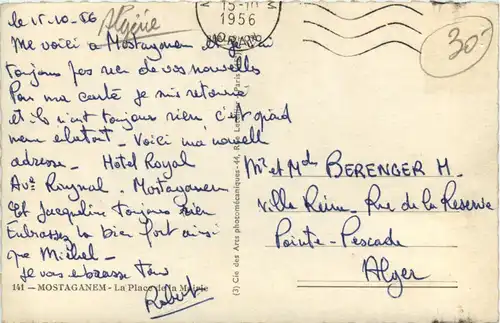 le 15.10.56
Algérie
15-10
1956
30-
Me voici à Mostaganem et je n'ai
toujours pas rien de vos nouvelles
Pour ma carté je me retourne
et ils n'ont toujours rien c'est quand
meme. Voici ma nouvelle
adresse - Hotel Royal
Ave Raynal. Mostaganem
Et Jacqueline toujours rien
Embrassez la bien fort ainsi
que Michel -
Je vous embrasse tous
Robert
141 - MOSTAGANEM - La Place de la Mairie
(3) Cie des Arts photomécaniques - 44, Rue Paris
Mr et Mde BERENGER H.
Villa Reine. Rue de la Reserve
Pointe-Pescade
Alger